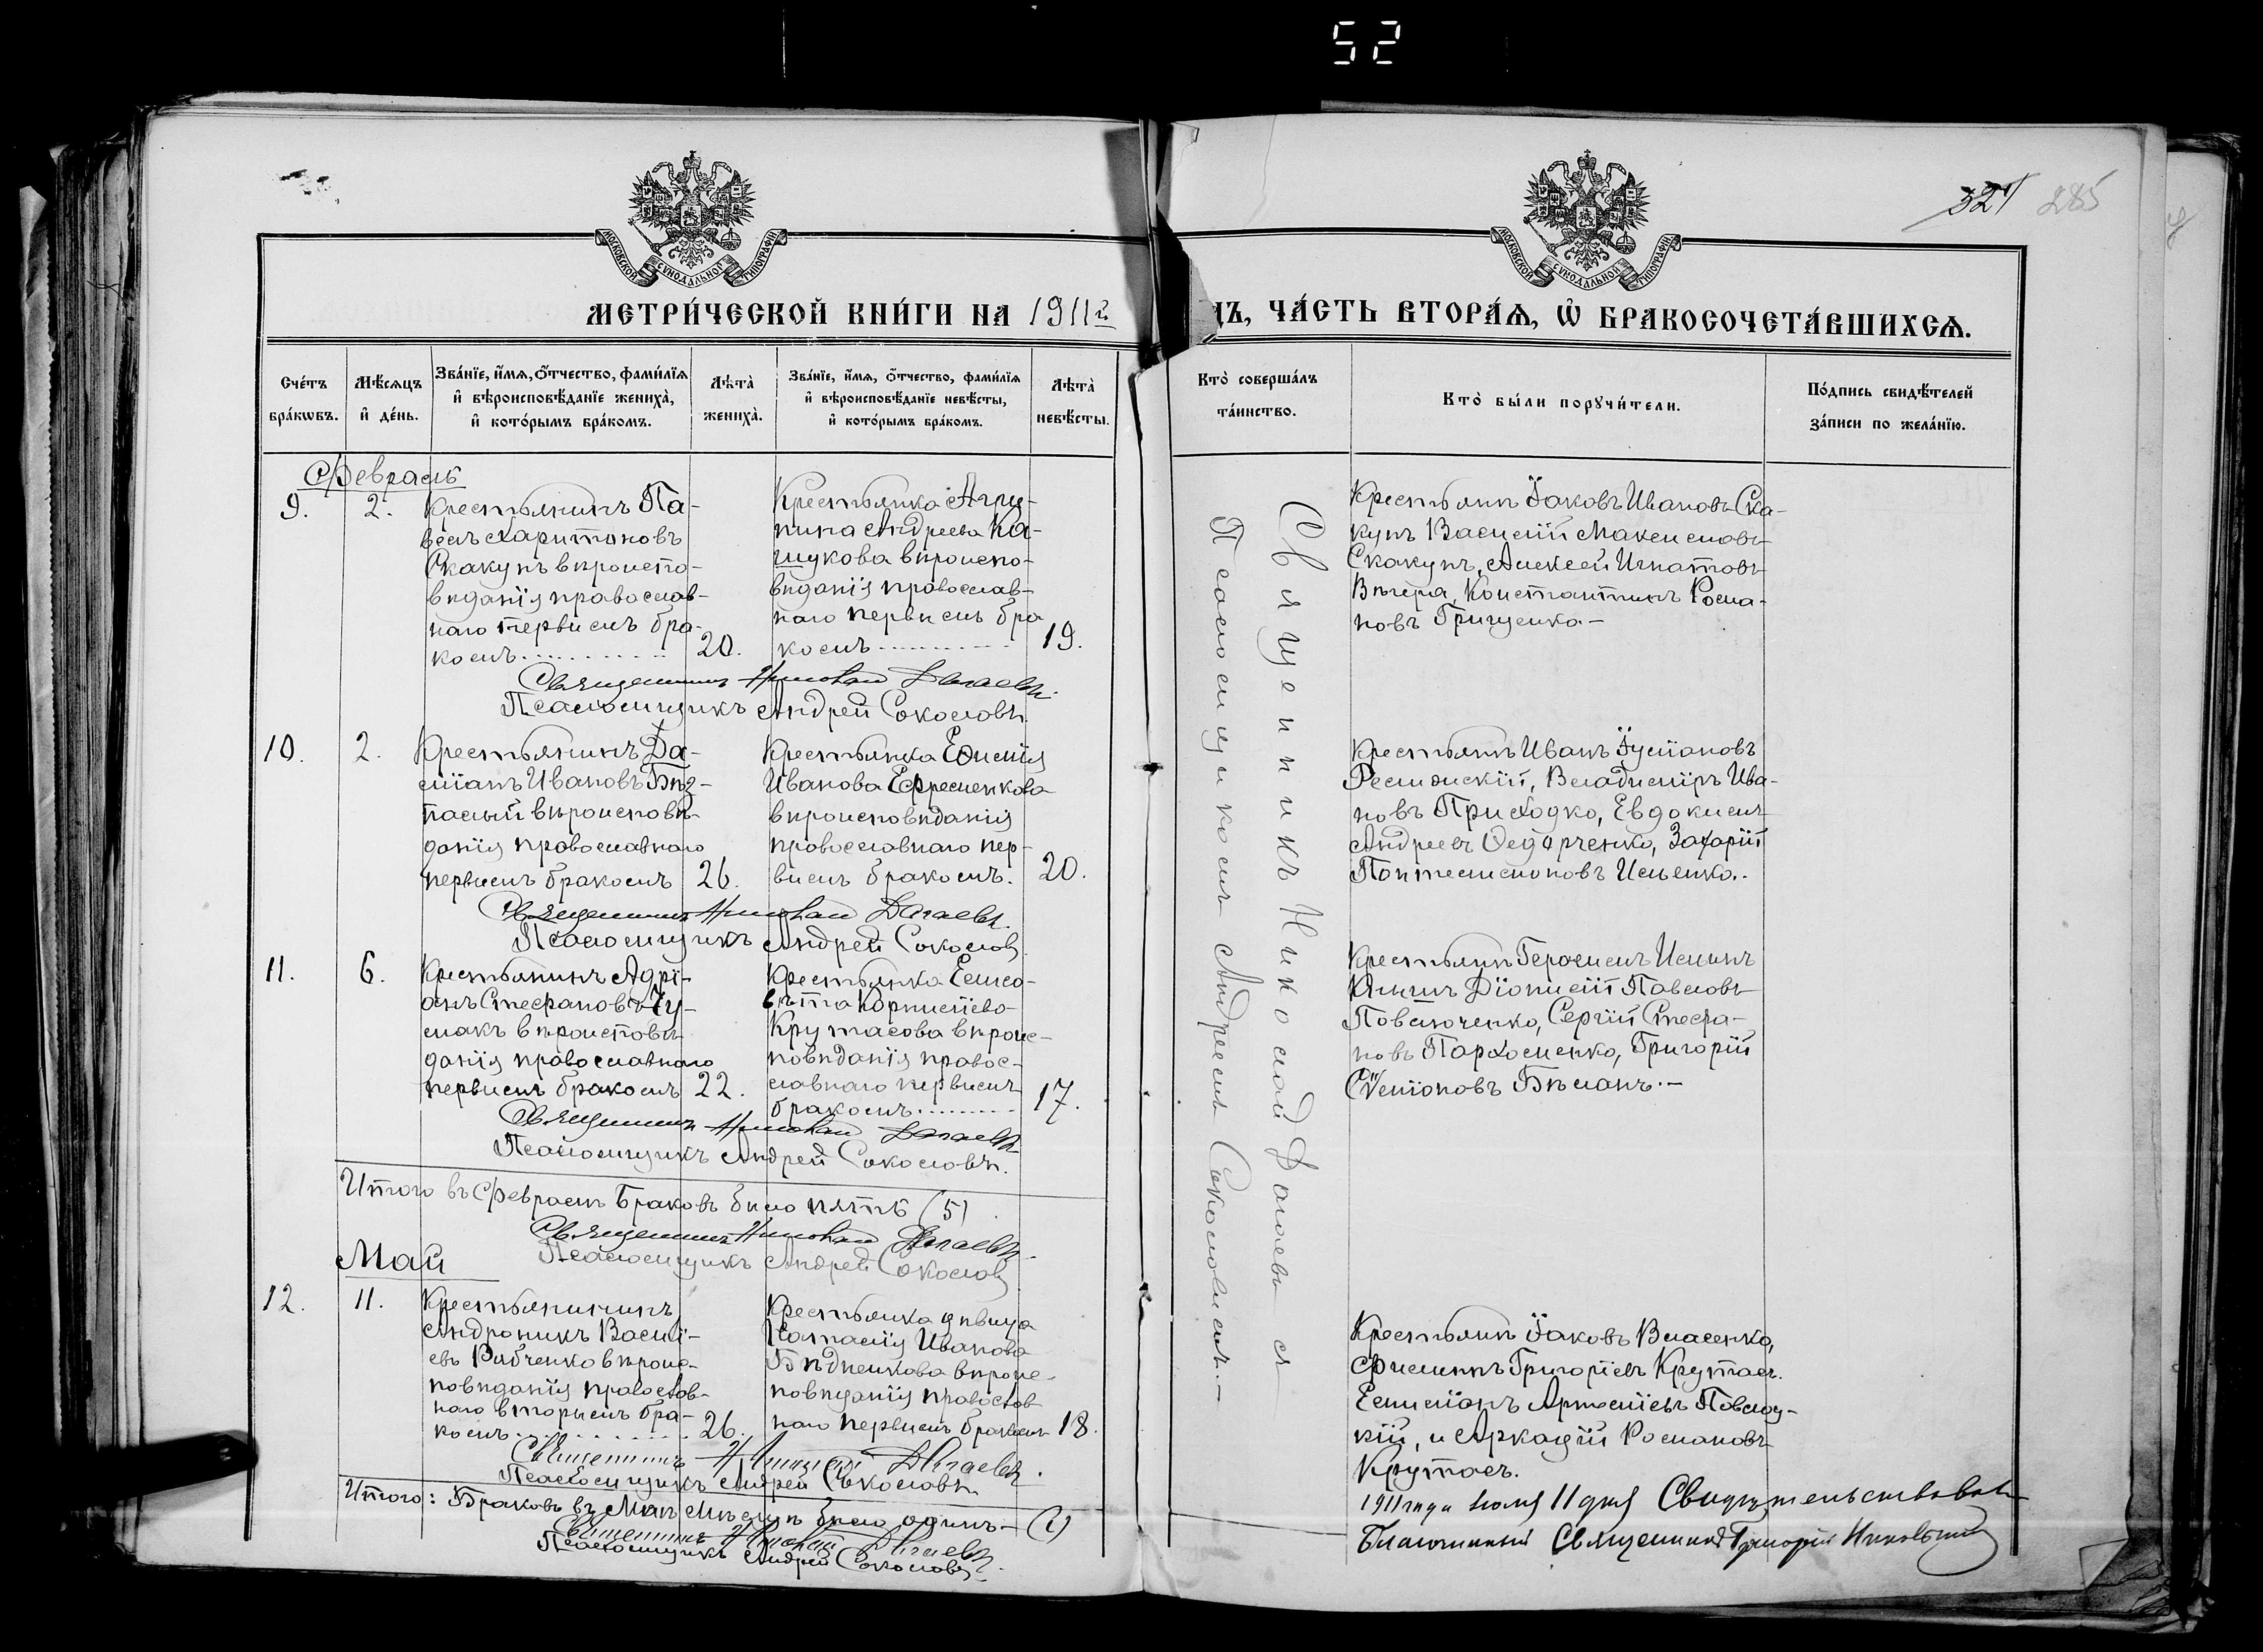 52
321 285
МОСКОВСКОЙ СѴНОДАЛЬНОЙ ТИПОГРАФІИ
МОСКОВСКОЙ СѴНОДАЛЬНОЙ ТИПОГРАФІИ
МЕТРИ́ЧЕСКОЙ КНИ́ГИ НА 1911 г.
ДЪ, ЧА́СТЬ ВТОРА́Ѧ, Ѡ҆ БРАКОСОЧЕТА́ВШИХСѦ.
Сче́тъ
бра́кѡвъ.
Мѣ́сѧцъ
и҆ де́нь.
Зва́нїе, и҆́мѧ, ѻ҆́тчество, фами́лїѧ
и҆ вѣроисповѣ́данїе жениха̀,
и҆ кото́рымъ бра́комъ.
Лѣ́та̀
жениха̀.
Зва́нїе, и҆́мѧ, ѻ҆́тчество, фами́лїѧ
и҆ вѣроисповѣ́данїе невѣ́сты,
и҆ кото́рымъ бра́комъ.
Лѣ́та̀
невѣ́сты.
Кто̀ соверша́лъ
та́инство.
Кто̀ бы́ли порꙋчи́тели.
По́дпись свидѣ́телей
за́писи по жела́нїю.
Февраль
9.
2.
Крестьянинъ Па-
велъ Харитоновъ
Скакунъ вѣроиспо-
вѣданія православ-
наго первымъ бра-
комъ
20.
Крестьянка Агри-
пина Андреева Ка-
шукова вѣроиспо-
вѣданія православ-
наго первымъ бра
комъ
19.
Крестьяне Іаковъ Ивановъ Ска-
кунъ Василій Максимовъ
Скакунъ, Алексей Игнатовъ
Вечера, Константинъ Рома-
новъ Грищенко
Священникъ Николай Дагаевъ
Псаломщикъ Андрей Соколовъ
10.
2.
Крестьянинъ Да-
міанъ Ивановъ Бѣз-
палый вѣроисповѣ-
данія православнаго
первымъ бракомъ
26.
Крестьянка Евимія
Иванова Ефременкова
вѣроисповѣданія
православнаго пер-
вымъ бракомъ.
20.
Крестьяне Иванъ Іуліановъ
Владиміръ Ива-
новъ Приходко, Евдокимъ
Андреевъ Ѳедорченко, Захарій
Пантелимоновъ Исценко.
Священникъ Николай Дагаевъ
Псаломщикъ Андрей Соколовъ
11.
6.
Крестьянинъ Адрі-
анъ Стефановъ Чу-
макъ вѣроисповѣ-
данія православнаго
первымъ бракомъ
22.
Крестьянка Елиса-
вѣта Корниліева
Крутасова вѣроис-
повѣданія правос-
лавнаго первымъ
бракомъ
17.
Діонисій Павловъ
Павлюченко, Сергій Стефа-
новъ Пархоменко, Григорій
Симіоновъ Бѣланъ.
Священникъ Николай Дагаевъ
Псаломщикъ Андрей Соколовъ.
Итого въ Февралѣ браковъ было пять (5)
Священникъ Николай Дагаевъ
Псаломщикъ Андрей Соколовъ
Май
12.
11.
Крестьянинъ
Андроникъ Василі-
евъ Рябченко вѣроис-
повѣданія православ-
наго вторымъ бра-
комъ
26.
Крестьянка дѣвица
Наталія Иванова
Бѣдненкова вѣроис-
повѣданія православ
наго первымъ бракомъ
18.
Крестьяне Іаковъ Власенко,
Филиппъ Григоріевъ Крутасъ.
Емиліанъ Артеміевъ
кій, и Аркадій Романовъ
Крутасъ.
Священникъ Николай Дагаевъ.
Псаломщикъ Андрей Соколовъ
Итого: Браковъ въ Маѣ мѣсяцѣ было одинъ (1)
Священникъ Николай Дагаевъ
Псаломщикъ Андрей Соколовъ
Священникъ Николай Дагаевъ съ
Псаломщикомъ Андреемъ Соколовымъ.
1911 года Іюля 11 дня Свидѣтельствовалъ
Благочинный Священникъ Григорій